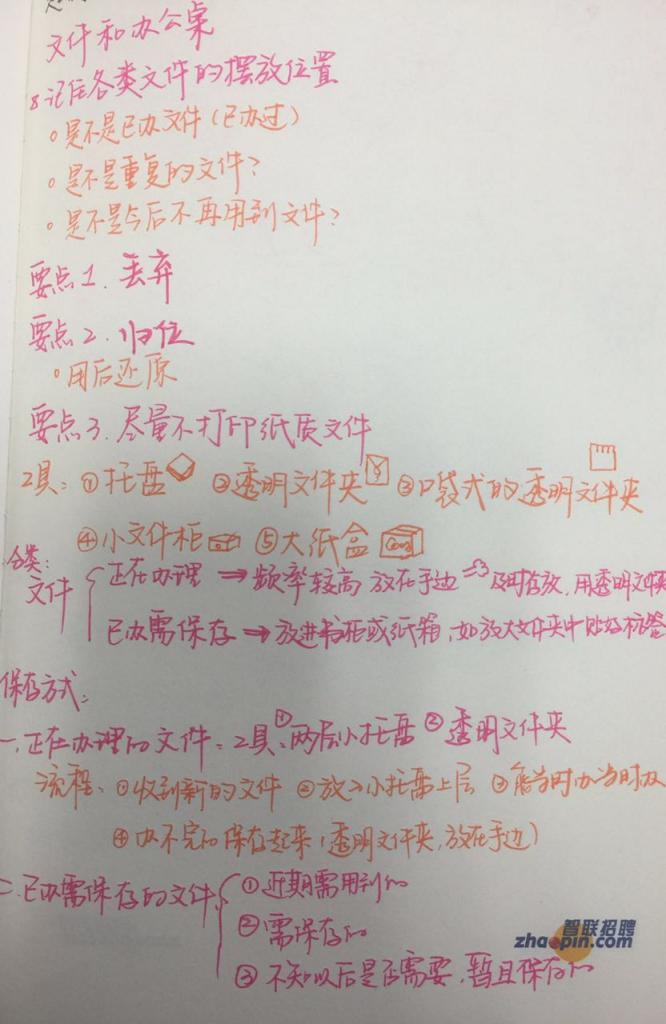 文件和办公桌
8.记住各类文件的摆放位置
。是不是已办文件(已办过)
。是不是重复的文件?
。是不是今后不再用到文件?
要点1.丢弃
要点2.归位
。用后还原
要点3.尽量不打印纸质文件
工具:①托盘 ②透明文件夹 ③口袋式的透明文件夹
④小文件柜 ⑤大纸盒
分类:
文件 正在办理→频率较高 放在手边→及时存放,用透明文件夹
已办需保存→放进书柜或纸箱,如放大文件夹中贴好标签
保存方式:
一.正在办理的文件:工具:①两层小托盘 ②透明文件夹
流程:①收到新的文件 ②放入小托盘上层 ③能当时办当时办
④办不完的保存起来(透明文件夹,放在手边)
二.已办需保存的文件 ①近期需用到的
②需保存的
③不知以后是否需要,暂且保存的
智联招聘
zhaopin.com